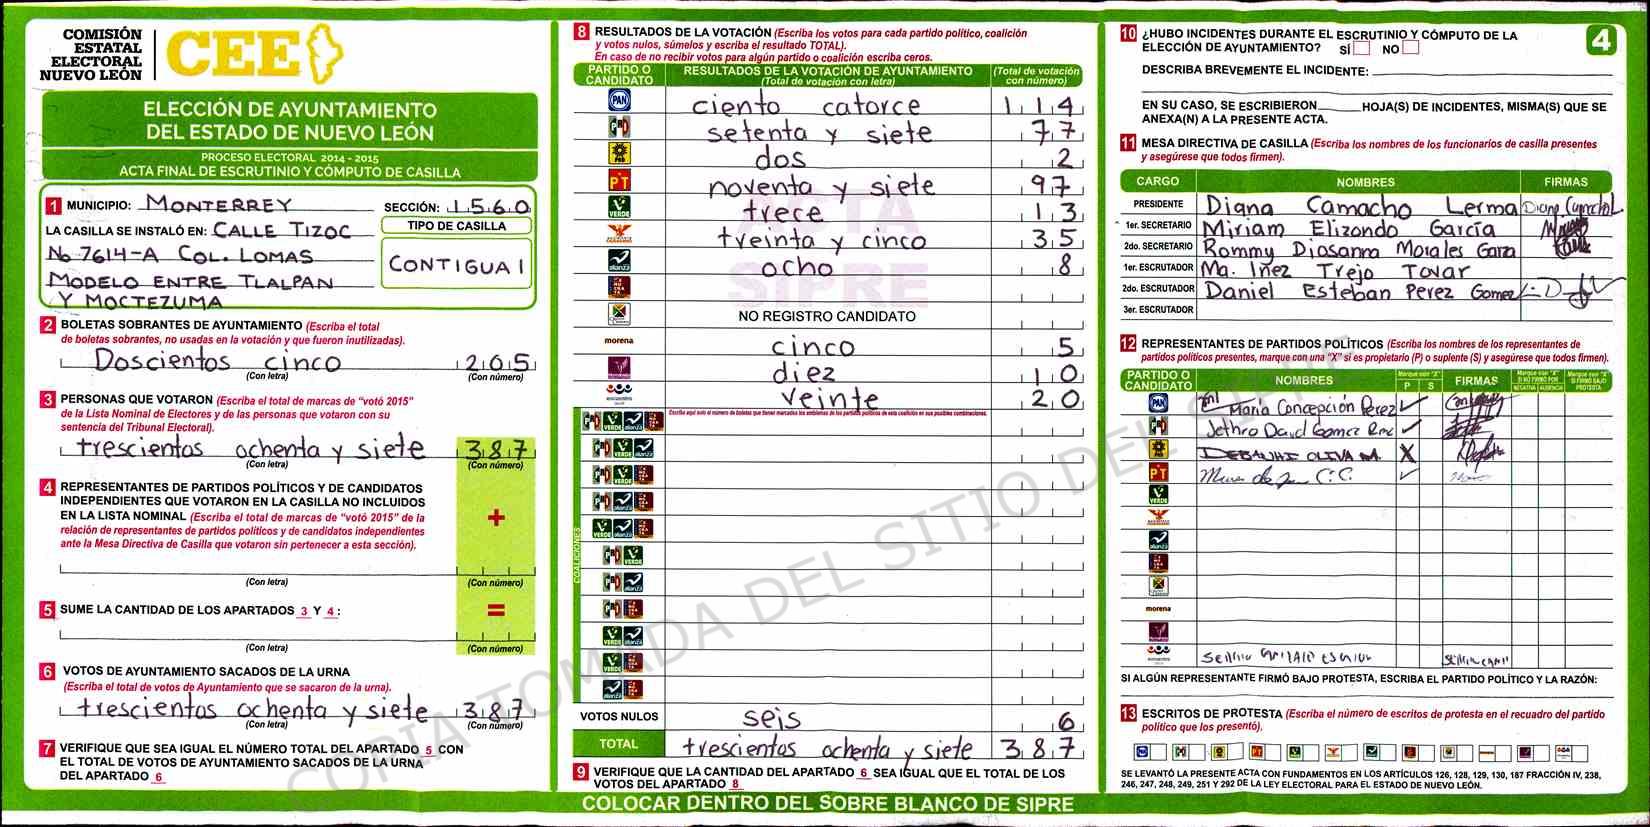 COMISIÓN
ESTATAL
ELECTORAL
NUEVO LEÓN
CEE
ELECCIÓN DE AYUNTAMIENTO
DEL ESTADO DE NUEVO LEÓN
PROCESO ELECTORAL 2014 - 2015
ACTA FINAL DE ESCRUTINIO Y CÓMPUTO DE CASILLA
1 MUNICIPIO: MONTERREY SECCIÓN: 1560
LA CASILLA SE INSTALÓ EN: CALLE TIZOC
TIPO DE CASILLA
No 7614-A COL. LOMAS
CONTIGUA 1
MODELO ENTRE TLALPAN
Y MOCTEZUMA
2 BOLETAS SOBRANTES DE AYUNTAMIENTO (Escriba el total
de boletas sobrantes, no usadas en la votación y que fueron inutilizadas).
Doscientos cinco 205
(Con letra) (Con número)
3 PERSONAS QUE VOTARON (Escriba el total de marcas de “votó 2015”
de la Lista Nominal de Electores y de las personas que votaron con su
sentencia del Tribunal Electoral).
trescientos ochenta y siete 387
(Con letra) (Con número)
4 REPRESENTANTES DE PARTIDOS POLÍTICOS Y DE CANDIDATOS
INDEPENDIENTES QUE VOTARON EN LA CASILLA NO INCLUIDOS
EN LA LISTA NOMINAL (Escriba el total de marcas de “votó 2015” de la
relación de representantes de partidos políticos y de candidatos independientes
ante la Mesa Directiva de Casilla que votaron sin pertenecer a esta sección).
+
(Con letra) (Con número)
5 SUME LA CANTIDAD DE LOS APARTADOS 3 Y 4 :
=
(Con letra) (Con número)
6 VOTOS DE AYUNTAMIENTO SACADOS DE LA URNA
(Escriba el total de votos de Ayuntamiento que se sacaron de la urna).
trescientos ochenta y siete 387
(Con letra) (Con número)
7 VERIFIQUE QUE SEA IGUAL EL NÚMERO TOTAL DEL APARTADO 5 CON
EL TOTAL DE VOTOS DE AYUNTAMIENTO SACADOS DE LA URNA
DEL APARTADO 6
8 RESULTADOS DE LA VOTACIÓN (Escriba los votos para cada partido político, coalición
y votos nulos, súmelos y escriba el resultado TOTAL).
En caso de no recibir votos para algún partido o coalición escriba ceros.
PARTIDO O CANDIDATO
RESULTADOS DE LA VOTACIÓN DE AYUNTAMIENTO
(Total de votación con letra)
(Total de votación con número)
PAN ciento catorce 114
PRD setenta y siete 77
PRD dos 2
PT noventa y siete 97
VERDE trece 13
treinta y cinco 35
alianza ocho 8
NO REGISTRO CANDIDATO
morena cinco 5
diez 10
encuentro veinte 20
ACTA
SIPRE
Escriba aquí solo el número de boletas que tienen marcados los emblemas de los partidos políticos de esta coalición en sus posibles combinaciones.
COALICIONES
VOTOS NULOS seis 6
TOTAL trescientos ochenta y siete 387
9 VERIFIQUE QUE LA CANTIDAD DEL APARTADO 6 SEA IGUAL QUE EL TOTAL DE LOS
VOTOS DEL APARTADO 8
COLOCAR DENTRO DEL SOBRE BLANCO DE SIPRE
10 ¿HUBO INCIDENTES DURANTE EL ESCRUTINIO Y CÓMPUTO DE LA
ELECCIÓN DE AYUNTAMIENTO? SÍ NO
4
DESCRIBA BREVEMENTE EL INCIDENTE:
EN SU CASO, SE ESCRIBIERON HOJA(S) DE INCIDENTES, MISMA(S) QUE SE
ANEXA(N) A LA PRESENTE ACTA.
11 MESA DIRECTIVA DE CASILLA (Escriba los nombres de los funcionarios de casilla presentes
y asegúrese que todos firmen).
CARGO NOMBRES FIRMAS
PRESIDENTE Diana Camacho Lerma
1er. SECRETARIO Miriam Elizondo García
2do. SECRETARIO Rommy Diosanna Morales Garza
1er. ESCRUTADOR Ma. Iñez Trejo Tovar
2do. ESCRUTADOR Daniel Esteban Perez Gomez
3er. ESCRUTADOR
12 REPRESENTANTES DE PARTIDOS POLÍTICOS (Escriba los nombres de los representantes de
partidos políticos presentes, marque con una “X” si es propietario (P) o suplente (S) y asegúrese que todos firmen).
PARTIDO O CANDIDATO
NOMBRES
Marque con "X"
P S
FIRMAS
Marque con "X" SI NO FIRMÓ POR
NEGATIVA AUSENCIA
Marque con "X" SI FIRMÓ BAJO PROTESTA
PAN María Concepción Perez
Jethro David Gomez
DEBANHI OLIVA M. X
PT
VERDE
alianza
morena
encuentro
SI ALGÚN REPRESENTANTE FIRMÓ BAJO PROTESTA, ESCRIBA EL PARTIDO POLÍTICO Y LA RAZÓN:
13 ESCRITOS DE PROTESTA (Escriba el número de escritos de protesta en el recuadro del partido
político que los presentó).
SE LEVANTÓ LA PRESENTE ACTA CON FUNDAMENTOS EN LOS ARTÍCULOS 126, 128, 129, 130, 187 FRACCIÓN IV, 238,
246, 247, 248, 249, 251 Y 292 DE LA LEY ELECTORAL PARA EL ESTADO DE NUEVO LEÓN.
COPIA TOMADA DEL SITIO DEL SIPRE